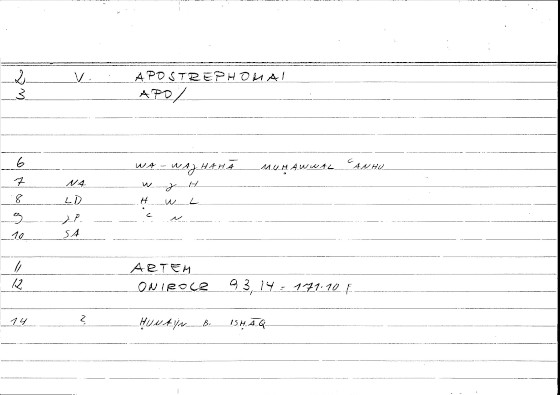 2 V. APOSTREPHOMAI
3 APO/
6 WA-WAJHAHĀ MUḤAWWAL ʿANHU
7 NA W J H
8 LD Ḥ W L
9 JP ʿ N
10 SA
11 ARTEM
12 ONIROCR 93,14 = 171.10 F
14 2 ḤUNAYN B. ISḤĀQ